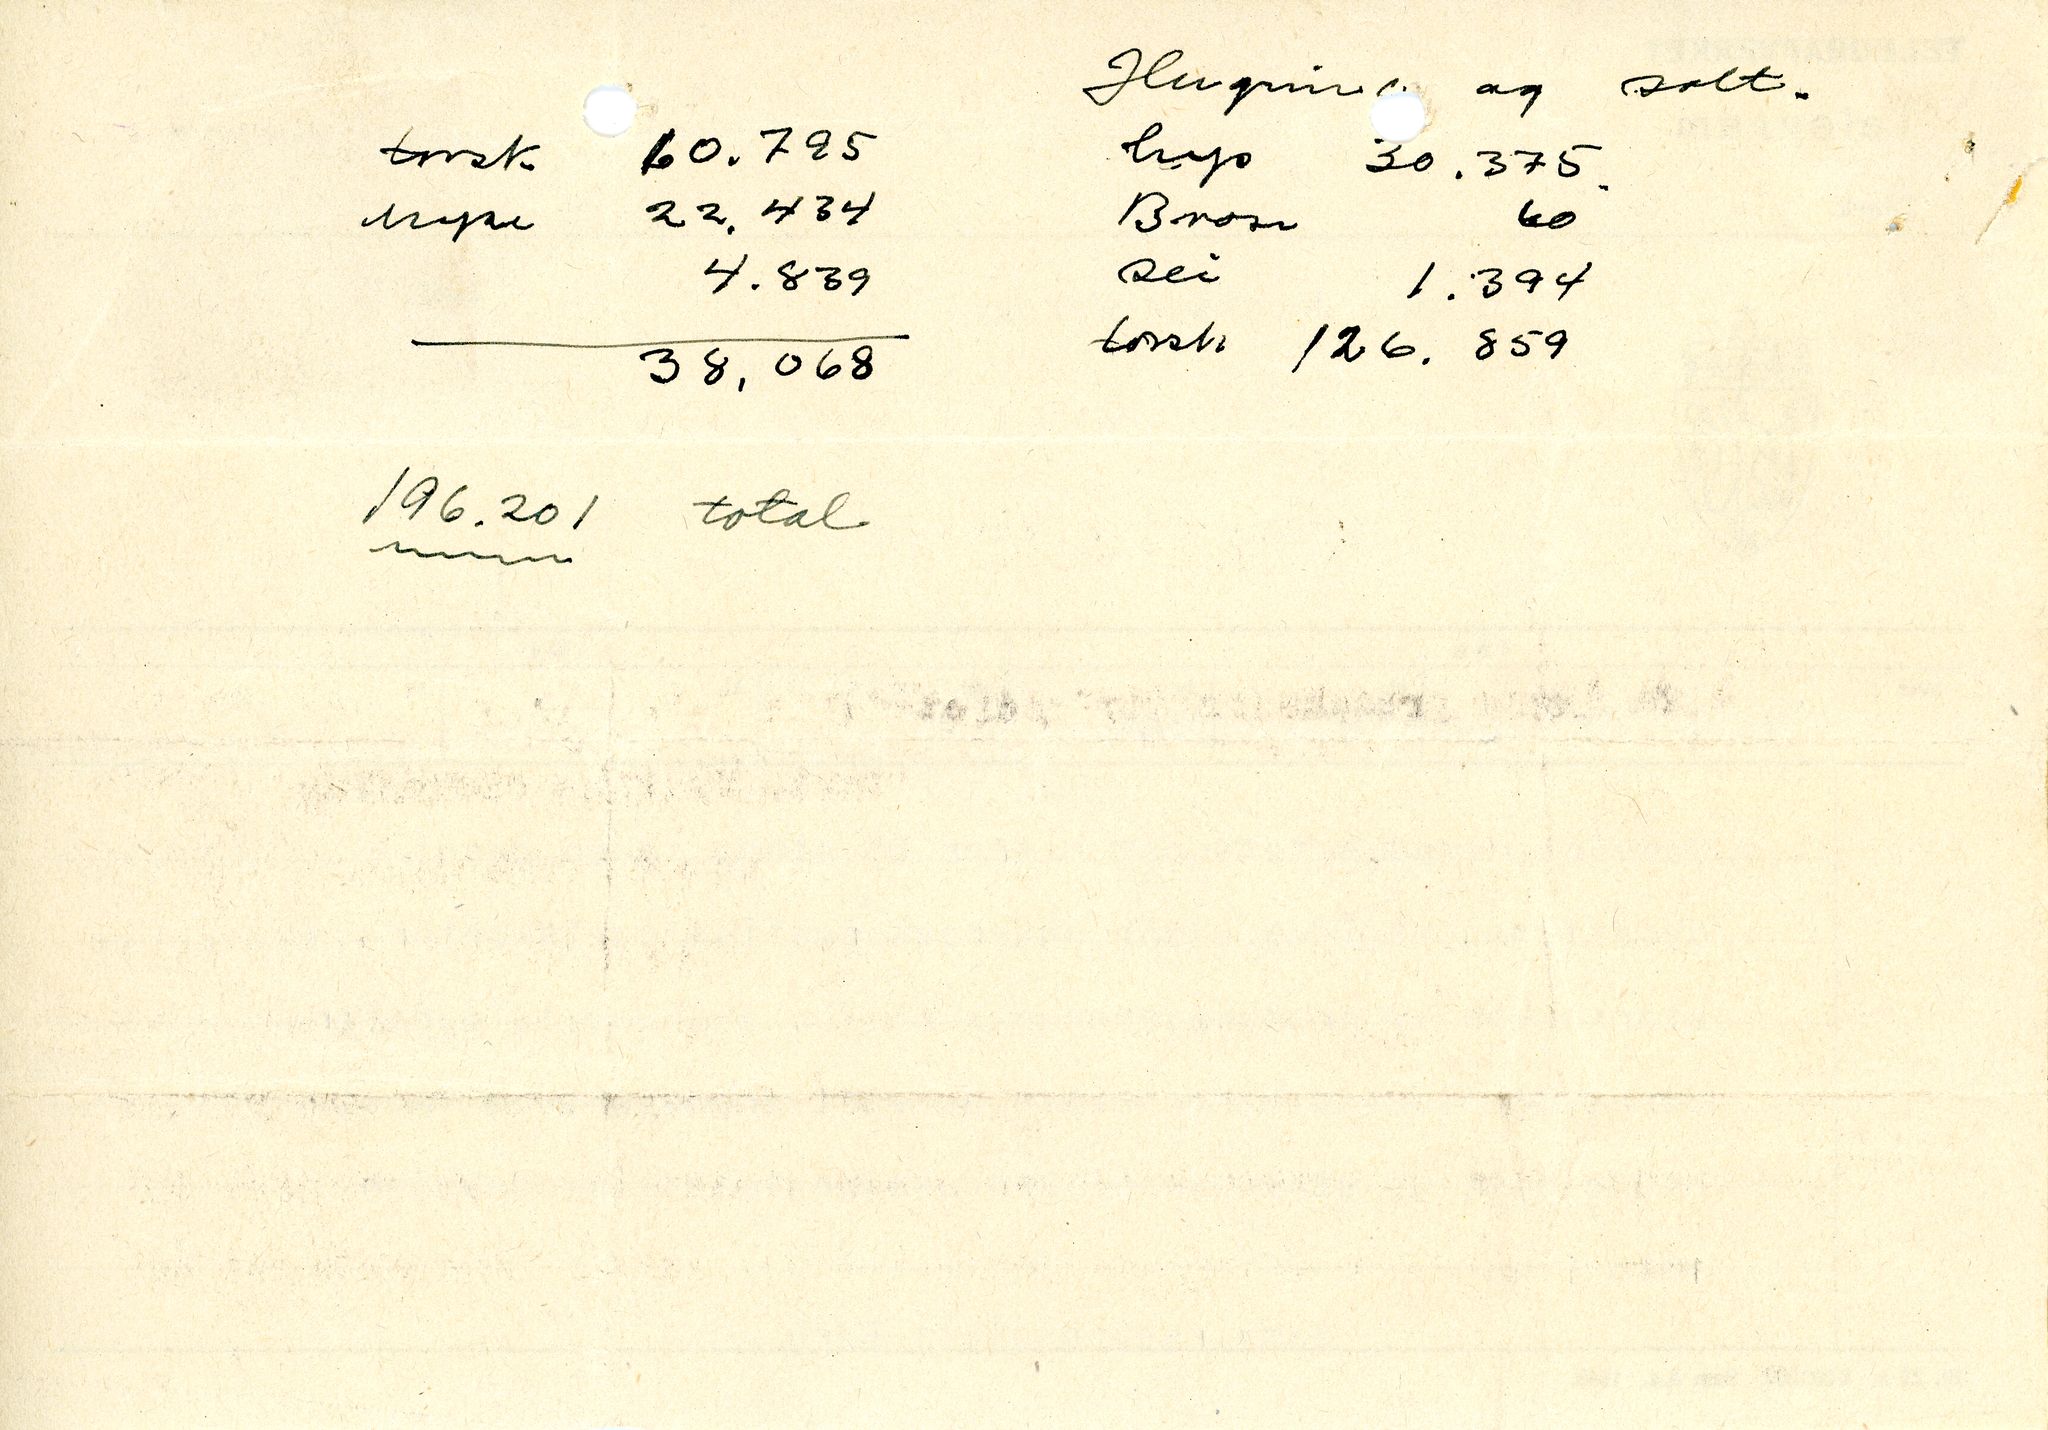 og salt.
torsk 10.795
22.434
4.839
38,068
hyse 30.375.
Brosme 60
sei 1.394
torsk 126.859
196.201 total